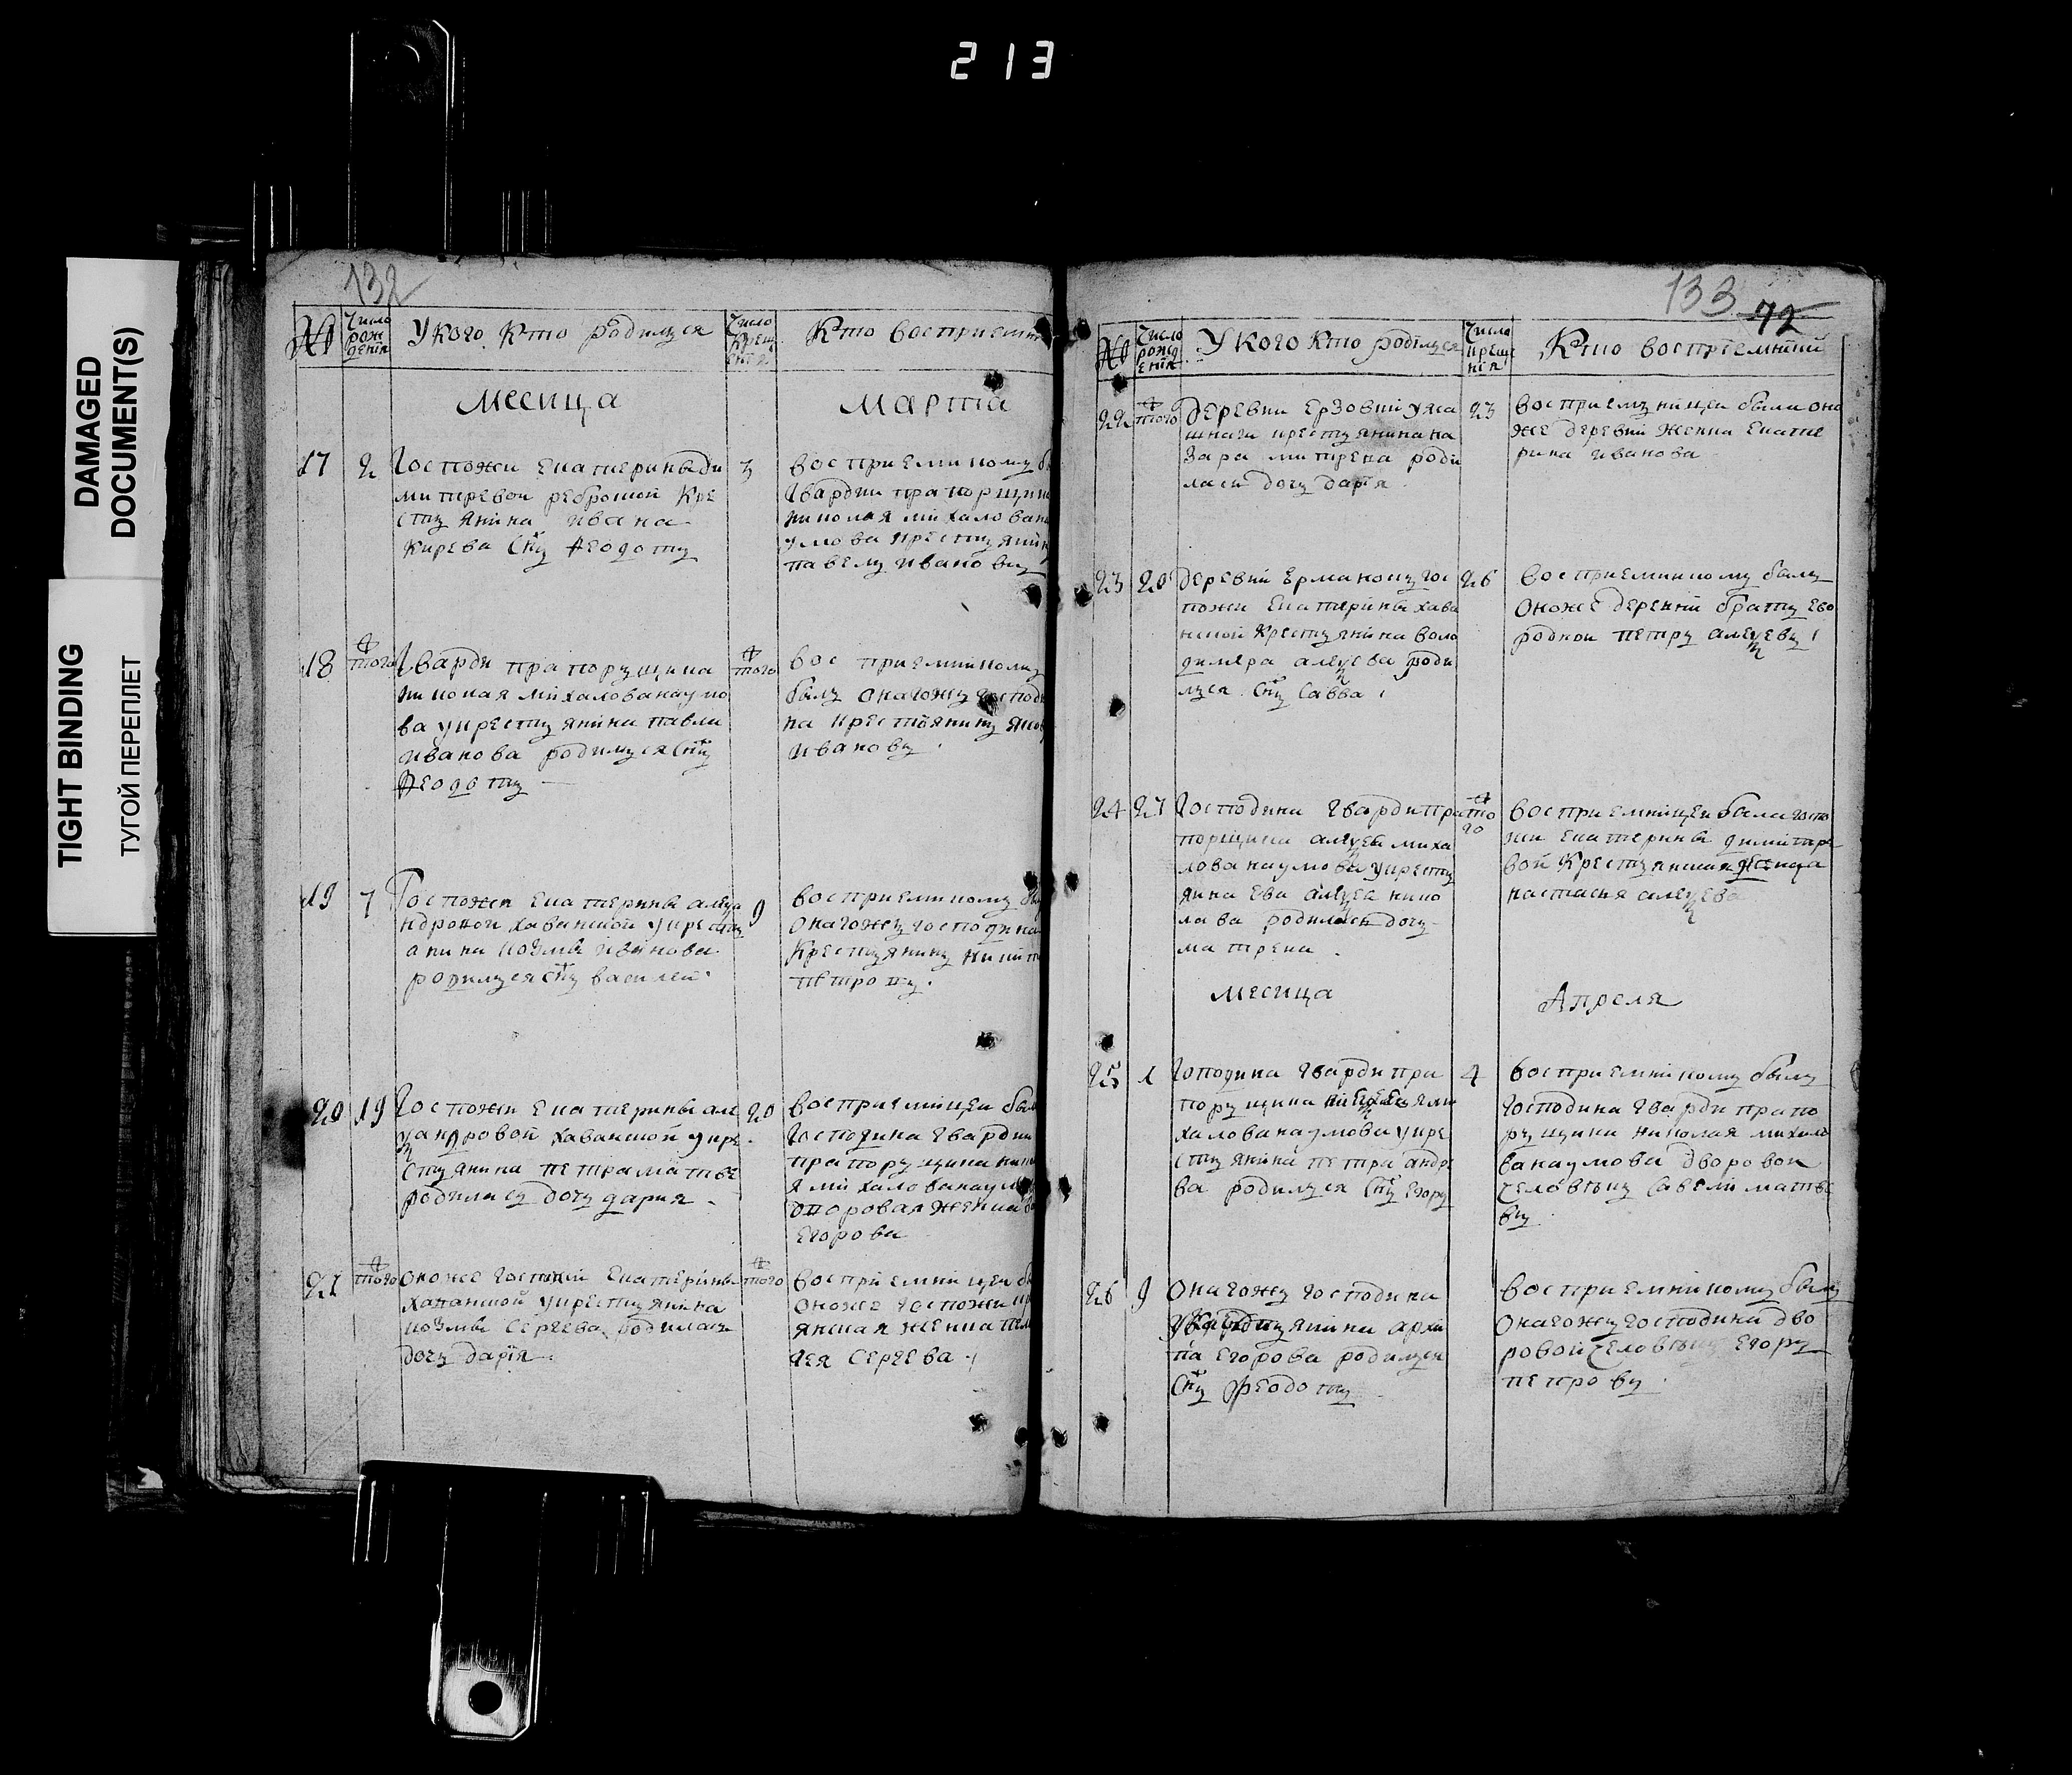 213
DAMAGED
DOCUMENT(S)
TIGHT BINDING
ТУГОЙ ПЕРЕПЛЕТ
132
№
Число
рож
дения
У кого кто родился
Число
крещ
ения
Кто восприемни
месяца марта
17 2 Госпожи Екатерины ди 3
митревой кре
стьянина ивана
кирева Снъ Ѳеодотъ
восприемникомъ бы
гвардии прапорщика
николая михалова на
умова крестьянин
павелъ ивановъ
18 того гварди прапорщика того
николая михалова наумо
ва укрестьянина павла
иванова родился Снъ
Ѳеодотъ
вос приемникомъ
былъ онагожъ господи
на крестьянинъ яков
ивановъ
19 7 Госпожи Екатерины алеѯа 9
ндровой хаванской укресть
анина козмы иванова
родился Снъ василей
восприемникомъ бы
онагожъ господина
крестьянинъ никит
петровъ
20 19 Госпожи Екатерины але 20
ѯандровой хаванской укре
стьянина петра матве
родилась дочь дария
восприемницей была
господина гвардии
прапорщика ник
я михалова наумо
дворовая женка
Егорова
21 того оноже госпожи Екатерины того
хаванской укрестьянина
козмы сергева родилась
дочь дарїя
восприемницей бы
оноже госпожи кр
янская женка пел
гея сергева
133
72
№
Число
рожд
ения
У кого кто родился
Число
креще
нія
Кто восприемникй
22 того деревни ерзовки уяса 23
шнаги крестьянина на
зара митрева роди
ласи дочь дарїя
восприемницеи была оно
же деревни женка Екате
рина иванова
23 20 деревни Ермаковъ гос 26
пожи Екатерины хава
нской крестьянина воло
димера алеѯева роди
лся Снъ савва
восприемникомъ былъ
оноже деревни братъ ево
родной петръ алеѯевъ
24 27 господина гвардипра того
порщика алеѯея миха
лова наумова укресть
янина алеѯея нико
лава родилась дочь
матрена
восприемницеи была госпо
жи Екатерины димитре
вой крестьянская женка
настасия алеѯева
месяца Апреля
25 1 господина гварди пра 4
порщика ми
халова наумова укре
стьянина петра андре
ва родился Снъ Егоръ
восприемникомъ былъ
господина гварди прапо
рщика николая михало
ва наумова дворовой
человѣкъ савели матве
въ
26 9 онагожъ господина
янина архи
па Егорова родился
Снъ Ѳеодотъ
восприемникомъ былъ
онагожъ господина дво
ровой человѣкъ Егоръ
петровъ